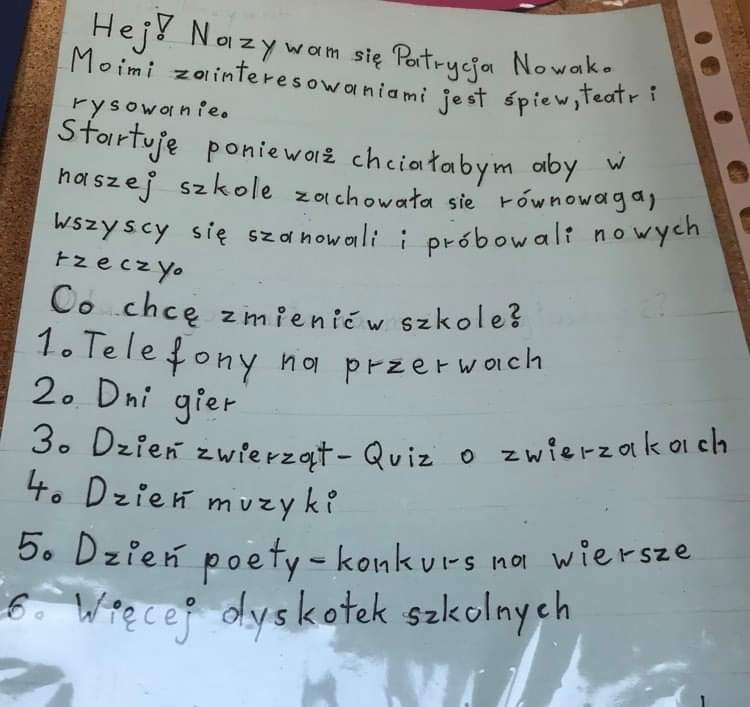 Hej! Nazywam się Patrycja Nowak.
Moimi zainteresowaniami jest śpiew, teatr i
rysowanie.
Startuję ponieważ chciałabym aby w
naszej szkole zachowała sie równowaga,
wszyscy się szanowali i próbowali nowych
rzeczy.
Co chcę zmienić w szkole?
1. Telefony na przerwach
2. Dni gier
3. Dzień zwierząt - Quiz o zwierzakach
4. Dzień muzyki
5. Dzień poety - konkurs na wiersze
6. Więcej dyskotek szkolnych